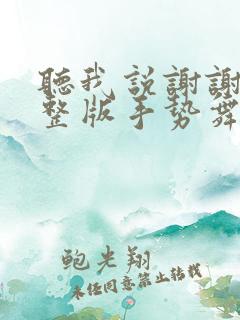 聽我說謝謝
整版手勢舞
鲍光翔
未经同意禁止转载